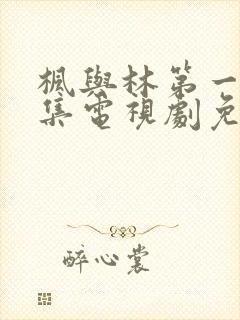 楓與林第一
集電視劇免
醉心裳